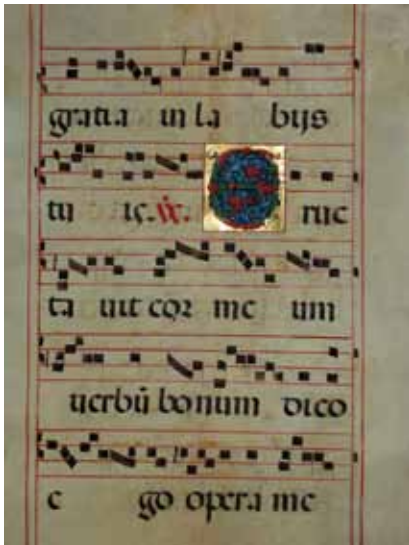 gratia in la bijs
tu is. ℣. Eruc
ta uit cor me um
uerbū bonum dico
e go opera me